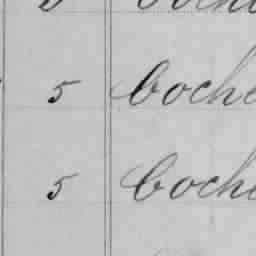 5 Coche
5 Coche